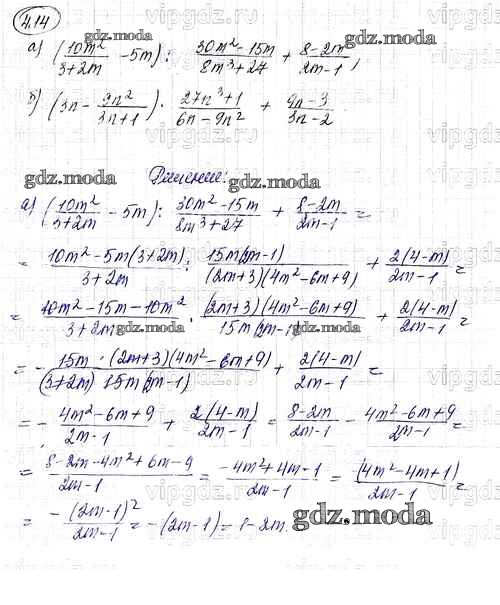 4.14
а) (10m²/(3+2m) - 5m) : (30m²-15m)/(8m³+27) + (8-2m)/(2m-1) ,
б) (3n - 9n²/(3n+1)) : (27n³+1)/(6n-9n²) + (9n-3)/(3n-2)
gdz.moda
gdz.moda
Решение:
gdz.moda
gdz.moda
а) (10m²/(3+2m) - 5m) : (30m²-15m)/(8m³+27) + (8-2m)/(2m-1) =
= (10m²-5m(3+2m))/(3+2m) : 15m(2m-1)/((2m+3)(4m²-6m+9)) + 2(4-m)/(2m-1) =
= (10m²-15m-10m²)/(3+2m) · (2m+3)(4m²-6m+9)/(15m(2m-1)) + 2(4-m)/(2m-1) =
= - 15m·(2m+3)(4m²-6m+9)/((3+2m) 15m(2m-1)) + 2(4-m)/(2m-1) =
= - (4m²-6m+9)/(2m-1) + 2(4-m)/(2m-1) = (8-2m)/(2m-1) - (4m²-6m+9)/(2m-1) =
= (8-2m-4m²+6m-9)/(2m-1) = (-4m²+4m-1)/(2m-1) = (4m²-4m+1)/(2m-1) =
= -(2m-1)²/(2m-1) = -(2m-1) = 1-2m.
gdz.moda